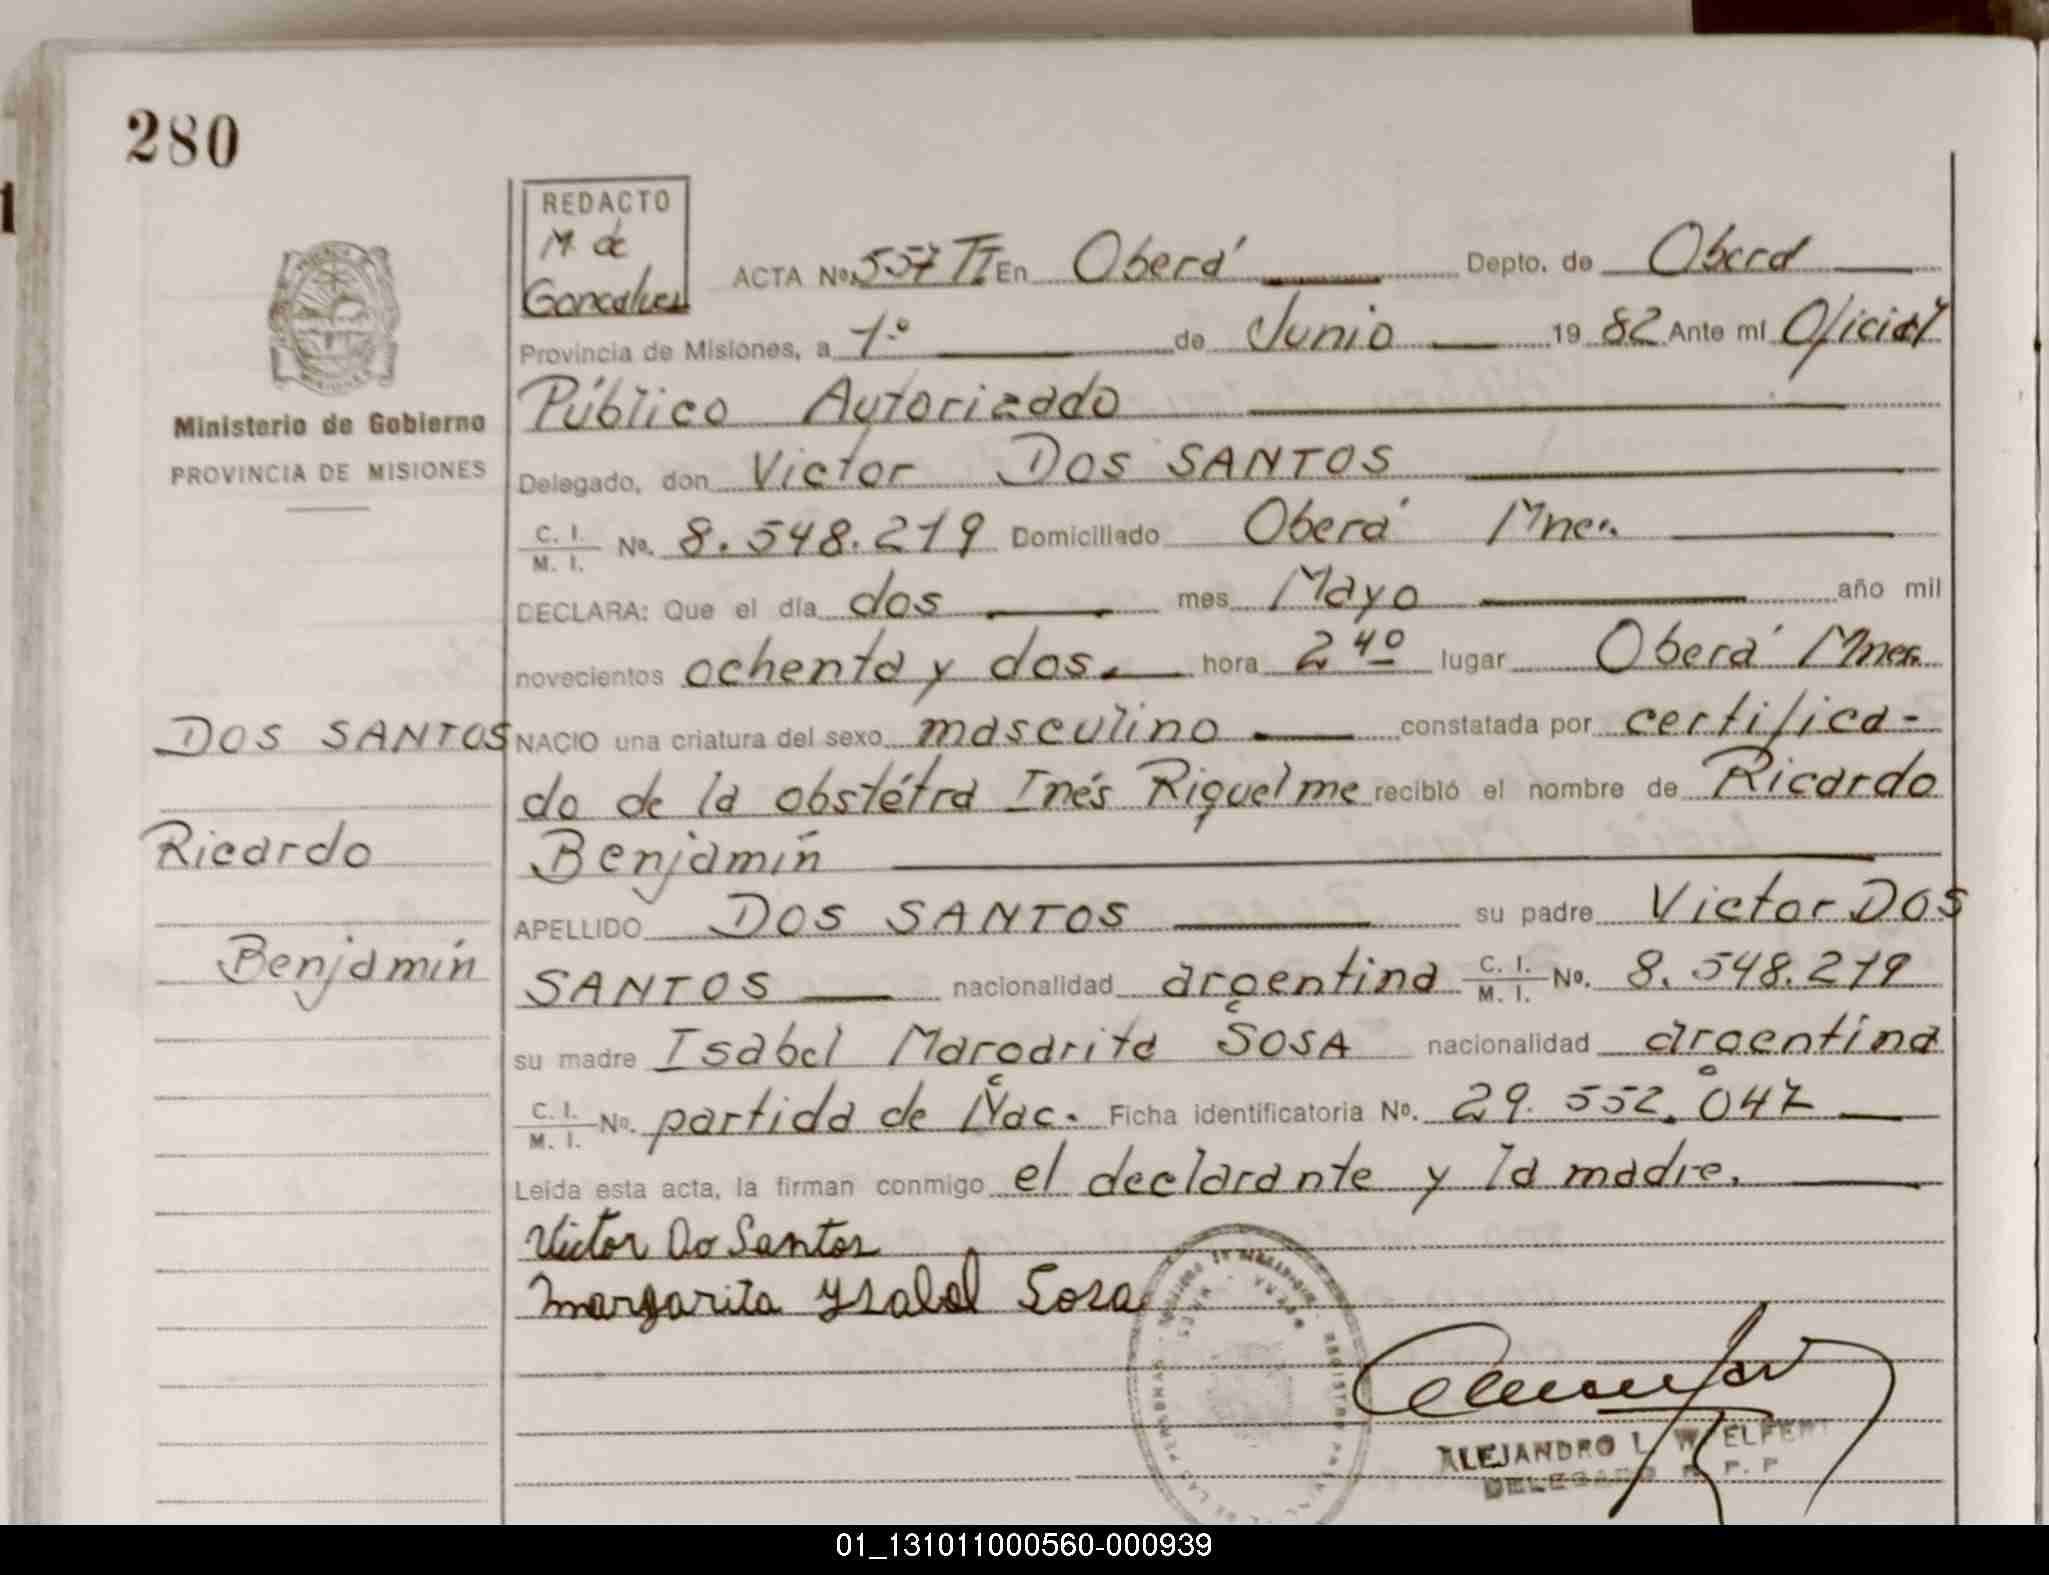 280
1
REDACTO
M. de
Goncalves
ACTA Nº 557 TI En Oberá Depto. de Oberá
Provincia de Misiones, a 1º de Junio 19 82 Ante mí Oficial
Público Autorizado
Ministerio de Gobierno
PROVINCIA DE MISIONES
Delegado, don Victor DOS SANTOS
C. I. / M. I. Nº. 8.548.219 Domiciliado Oberá Mnes.
DECLARA: Que el día dos mes Mayo año mil
novecientos ochenta y dos. hora 2 40 lugar Oberá Mnes.
DOS SANTOS
NACIO una criatura del sexo masculino constatada por certifica-
do de la obstétra Inés Riquelme recibió el nombre de Ricardo
Ricardo
Benjamín
APELLIDO DOS SANTOS su padre Victor DOS
Benjamín
SANTOS nacionalidad argentina C. I. / M. I. Nº. 8.548.219
su madre Isabel Margarita SOSA nacionalidad argentina
C. I. / M. I. Nº. partida de Nac. Ficha identificatoria Nº. 29.552.047
Leída esta acta, la firman conmigo el declarante y la madre.
Victor Do Santos
Margarita Ysabel Sosa
ALEJANDRO L. W ELFERT
DELEGADO R. P. P
01_131011000560-000939